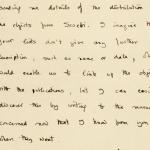 sending me details of the distribution
the objects from Scocchi. I imagine th
your lists don't give any further
scription, such as name or date, th
would enable us to link up the obje
with the publications, but I can easi
discover this by writing to the museu
concerned now that I know from you
them they went.